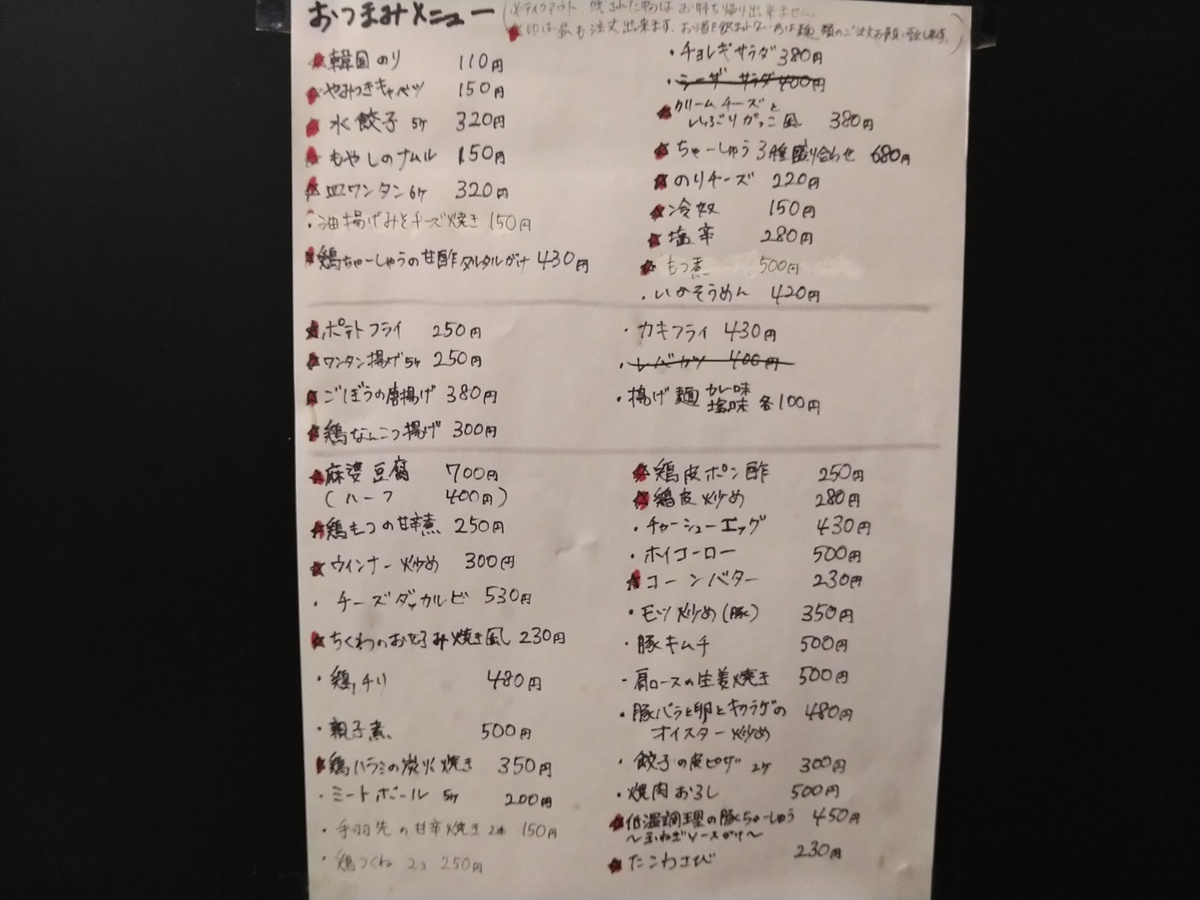 おつまみメニュー
(※テイクアウト、残された物はお持ち帰り出来ません
★印は昼も注文出来ます。お酒を飲まれない方は麺類のご注文お願い致します。)
★韓国のり 110円
★やみつきキャベツ 150円
★水餃子 5ケ 320円
★もやしのナムル 150円
★皿ワンタン 6ケ 320円
・油揚げみそチーズ焼き 150円
★鶏ちゃーしゅうの甘酢タルタルがけ 430円
・チョレギサラダ 380円
・シーザーサラダ 400円
★クリームチーズと
いぶりがっこ風 380円
★ちゃーしゅう3種盛り合わせ 680円
★のりチーズ 220円
★冷奴 150円
★塩辛 280円
★もつ煮 500円
・いかそうめん 420円
★ポテトフライ 250円
★ワンタン揚げ 5ケ 250円
★ごぼうの唐揚げ 380円
★鶏なんこつ揚げ 300円
・カキフライ 430円
・レバカツ 400円
・揚げ麺 カレー味
塩味 各100円
★麻婆豆腐 700円
(ハーフ 400円)
★鶏もつの甘辛煮 250円
★ウインナー炒め 300円
・チーズダッカルビ 530円
★ちくわのお好み焼き風 230円
・鶏チリ 480円
・親子煮 500円
★鶏ハラミの炭火焼き 350円
・ミートボール 5ケ 200円
・手羽先の甘辛焼き 2本 150円
・鶏つくね 2コ 250円
★鶏皮ポン酢 250円
★鶏皮炒め 280円
・チャーシューエッグ 430円
・ホイコーロー 500円
★コーンバター 230円
・モツ炒め(豚) 350円
・豚キムチ 500円
・肩ロースの生姜焼き 500円
・豚バラと卵とキクラゲの 480円
オイスター炒め
・餃子の皮ピザ 2ケ 300円
・焼肉おろし 500円
★低温調理の豚ちゃーしゅう 450円
～玉ねぎソースがけ～
★たこわさび 230円